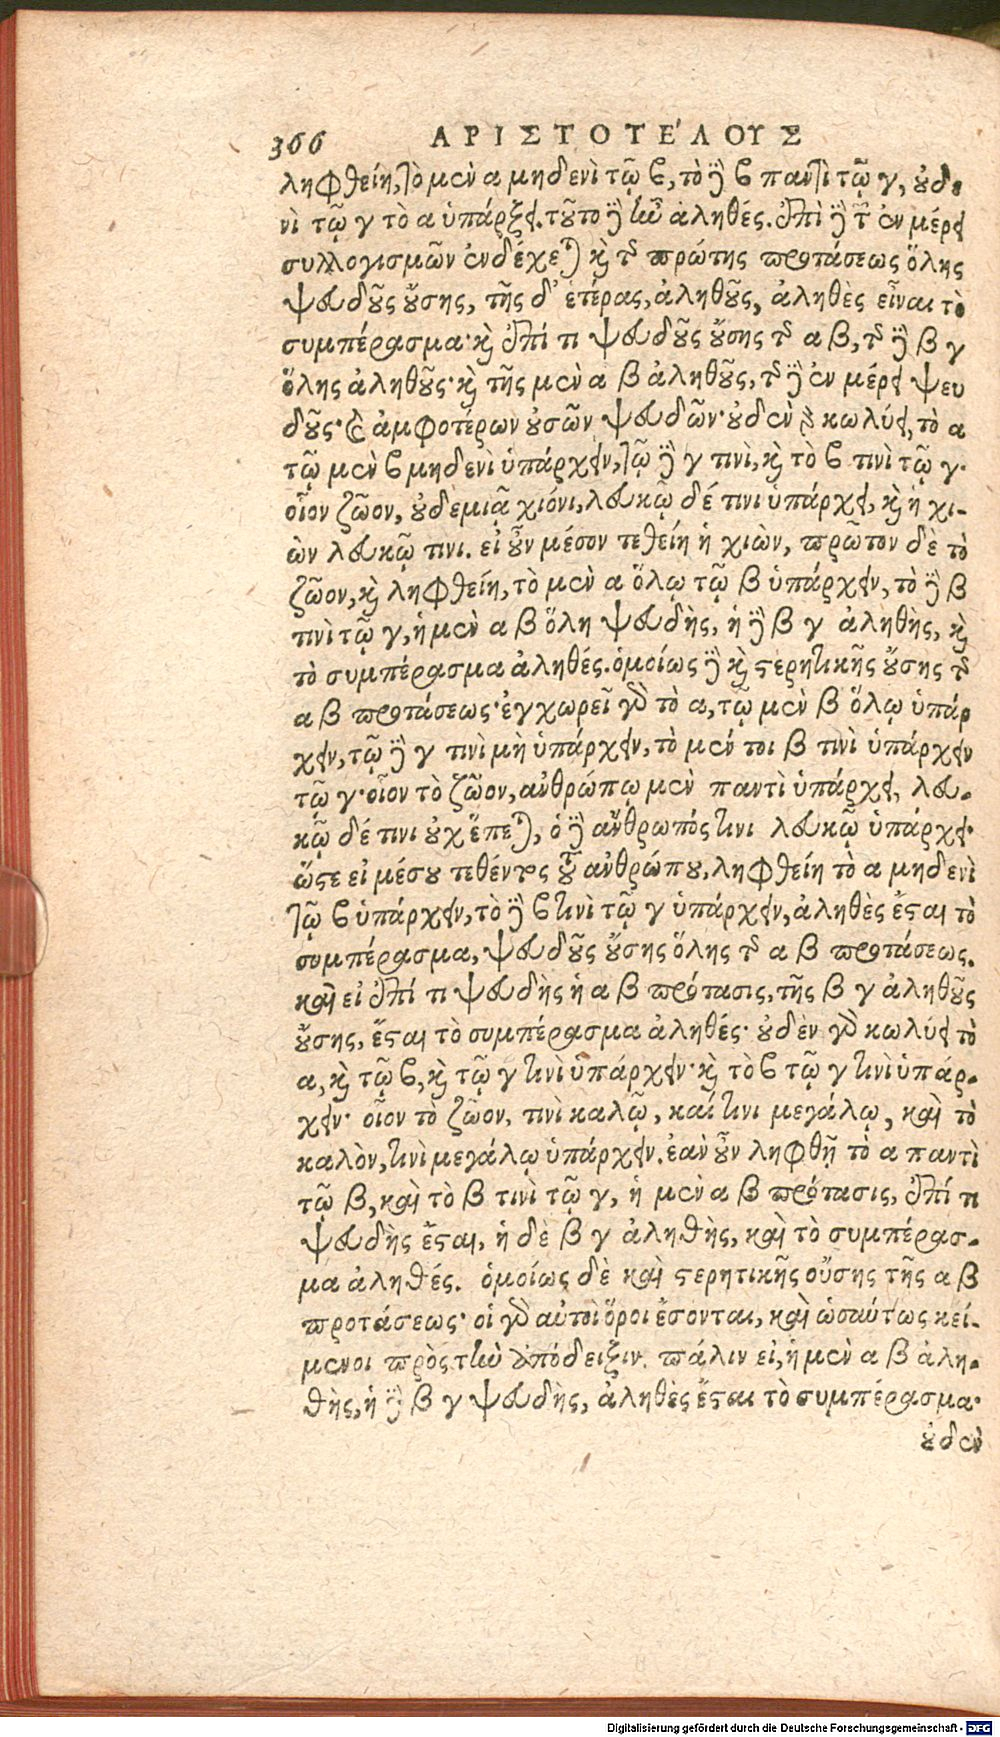 366 ΑΡΙΣΤΟΤΈΛΟΥΣ
ληφθείη, τὸ μὲν α μηδενὶ τῷ β, τὸ δὲ β παντὶ τῷ γ, οὐδε
νὶ τῷ γ τὸ α ὑπάρξει. τοῦτο δὲ ἦν ἀληθές. ἐπὶ δὲ τῶν ἐν μέρει
συλλογισμῶν ἐνδέχεται καὶ τῆς πρώτης προτάσεως ὅλης
ψευδοῦς οὔσης, τῆς δ' ἑτέρας, ἀληθοῦς, ἀληθὲς εἶναι τὸ
συμπέρασμα· καὶ ἐπί τι ψευδοῦς οὔσης τῆς α β, τῆς δὲ β γ
ὅλης ἀληθοῦς· καὶ τῆς μὲν α β ἀληθοῦς, τῆς δὲ ἐν μέρει ψευ
δοῦς· καὶ ἀμφοτέρων οὐσῶν ψευδῶν· οὐδὲν γὰρ κωλύει, τὸ α
τῷ μὲν β μηδενὶ ὑπάρχειν, τῷ δὲ γ τινὶ, καὶ τὸ β τινὶ τῷ γ·
οἷον ζῶον, οὐδεμιᾷ χιόνι, λευκῷ δέ τινι ὑπάρχει, καὶ ἡ χι-
ὼν λευκῷ τινι. εἰ οὖν μέσον τεθείη ἡ χιὼν, πρῶτον δὲ τὸ
ζῶον, καὶ ληφθείη, τὸ μὲν α ὅλῳ τῷ β ὑπάρχειν, τὸ δὲ β
τινὶ τῷ γ, ἡ μὲν α β ὅλη ψευδὴς, ἡ δὲ β γ ἀληθὴς, καὶ
τὸ συμπέρασμα ἀληθές. ὁμοίως δὲ καὶ στερητικῆς οὔσης τῆς
α β προτάσεως· ἐγχωρεῖ γὰρ τὸ α, τῷ μὲν β ὅλῳ ὑπάρ
χειν, τῷ δὲ γ τινὶ μὴ ὑπάρχειν, τὸ μέν τοι β τινὶ ὑπάρχειν
τῷ γ· οἷον τὸ ζῶον, ἀνθρώπῳ μὲν παντὶ ὑπάρχει, λευ-
κῷ δέ τινι οὐχ ἕπεται, ὁ δὲ ἄνθρωπός τινι λευκῷ ὑπάρχει·
ὥστε εἰ μέσου τεθέντος τοῦ ἀνθρώπου, ληφθείη τὸ α μηδενὶ
τῷ β ὑπάρχειν, τὸ δὲ β τινὶ τῷ γ ὑπάρχειν, ἀληθὲς ἔσται τὸ
συμπέρασμα, ψευδοῦς οὔσης ὅλης τῆς α β προτάσεως.
καὶ εἰ ἐπί τι ψευδὴς ἡ α β πρότασις, τῆς β γ ἀληθοῦς
οὔσης, ἔσται τὸ συμπέρασμα ἀληθές· οὐδὲν γὰρ κωλύει τὸ
α, καὶ τῷ β, καὶ τῷ γ τινὶ ὑπάρχειν· καὶ τὸ β τῷ γ τινὶ ὑπάρ-
χειν· οἷον τὸ ζῶον, τινὶ καλῷ, καί τινι μεγάλῳ, καὶ τὸ
καλὸν, τινὶ μεγάλῳ ὑπάρχειν. ἐὰν οὖν ληφθῇ τὸ α παντὶ
τῷ β, καὶ τὸ β τινὶ τῷ γ, ἡ μὲν α β πρότασις, ἐπί τι
ψευδὴς ἔσται, ἡ δὲ β γ ἀληθὴς, καὶ τὸ συμπέρασ-
μα ἀληθές. ὁμοίως δὲ καὶ στερητικῆς οὔσης τῆς α β
προτάσεως· οἱ γὰρ αὐτοὶ ὅροι ἔσονται, καὶ ὡσαύτως κεί-
μενοι πρὸς τὴν ἀπόδειξιν. πάλιν εἰ, ἡ μὲν α β ἀλη-
θὴς, ἡ δὲ β γ ψευδὴς, ἀληθὲς ἔσται τὸ συμπέρασμα·
οὐδὲν
Digitalisierung gefördert durch die Deutsche Forschungsgemeinschaft - DFG